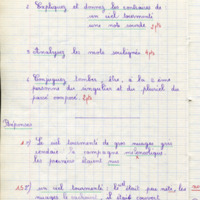 2 Expliquez et donnez les contraires de
un ciel tourmenté
une note sourde 2 pts
3 Analysez les mots soulignés 4 pts
4 Conjuguez tomber, être, à la 2 ème
personne du singulier et du pluriel du
passé composé 2 pts
Réponses
Le ciel tourmenté de gros nuages gris
rendait la campagne mélancolique
les pommiers étaient nus
un ciel tourmenté : le ciel était pas
nuages le couvraient, il était couvert